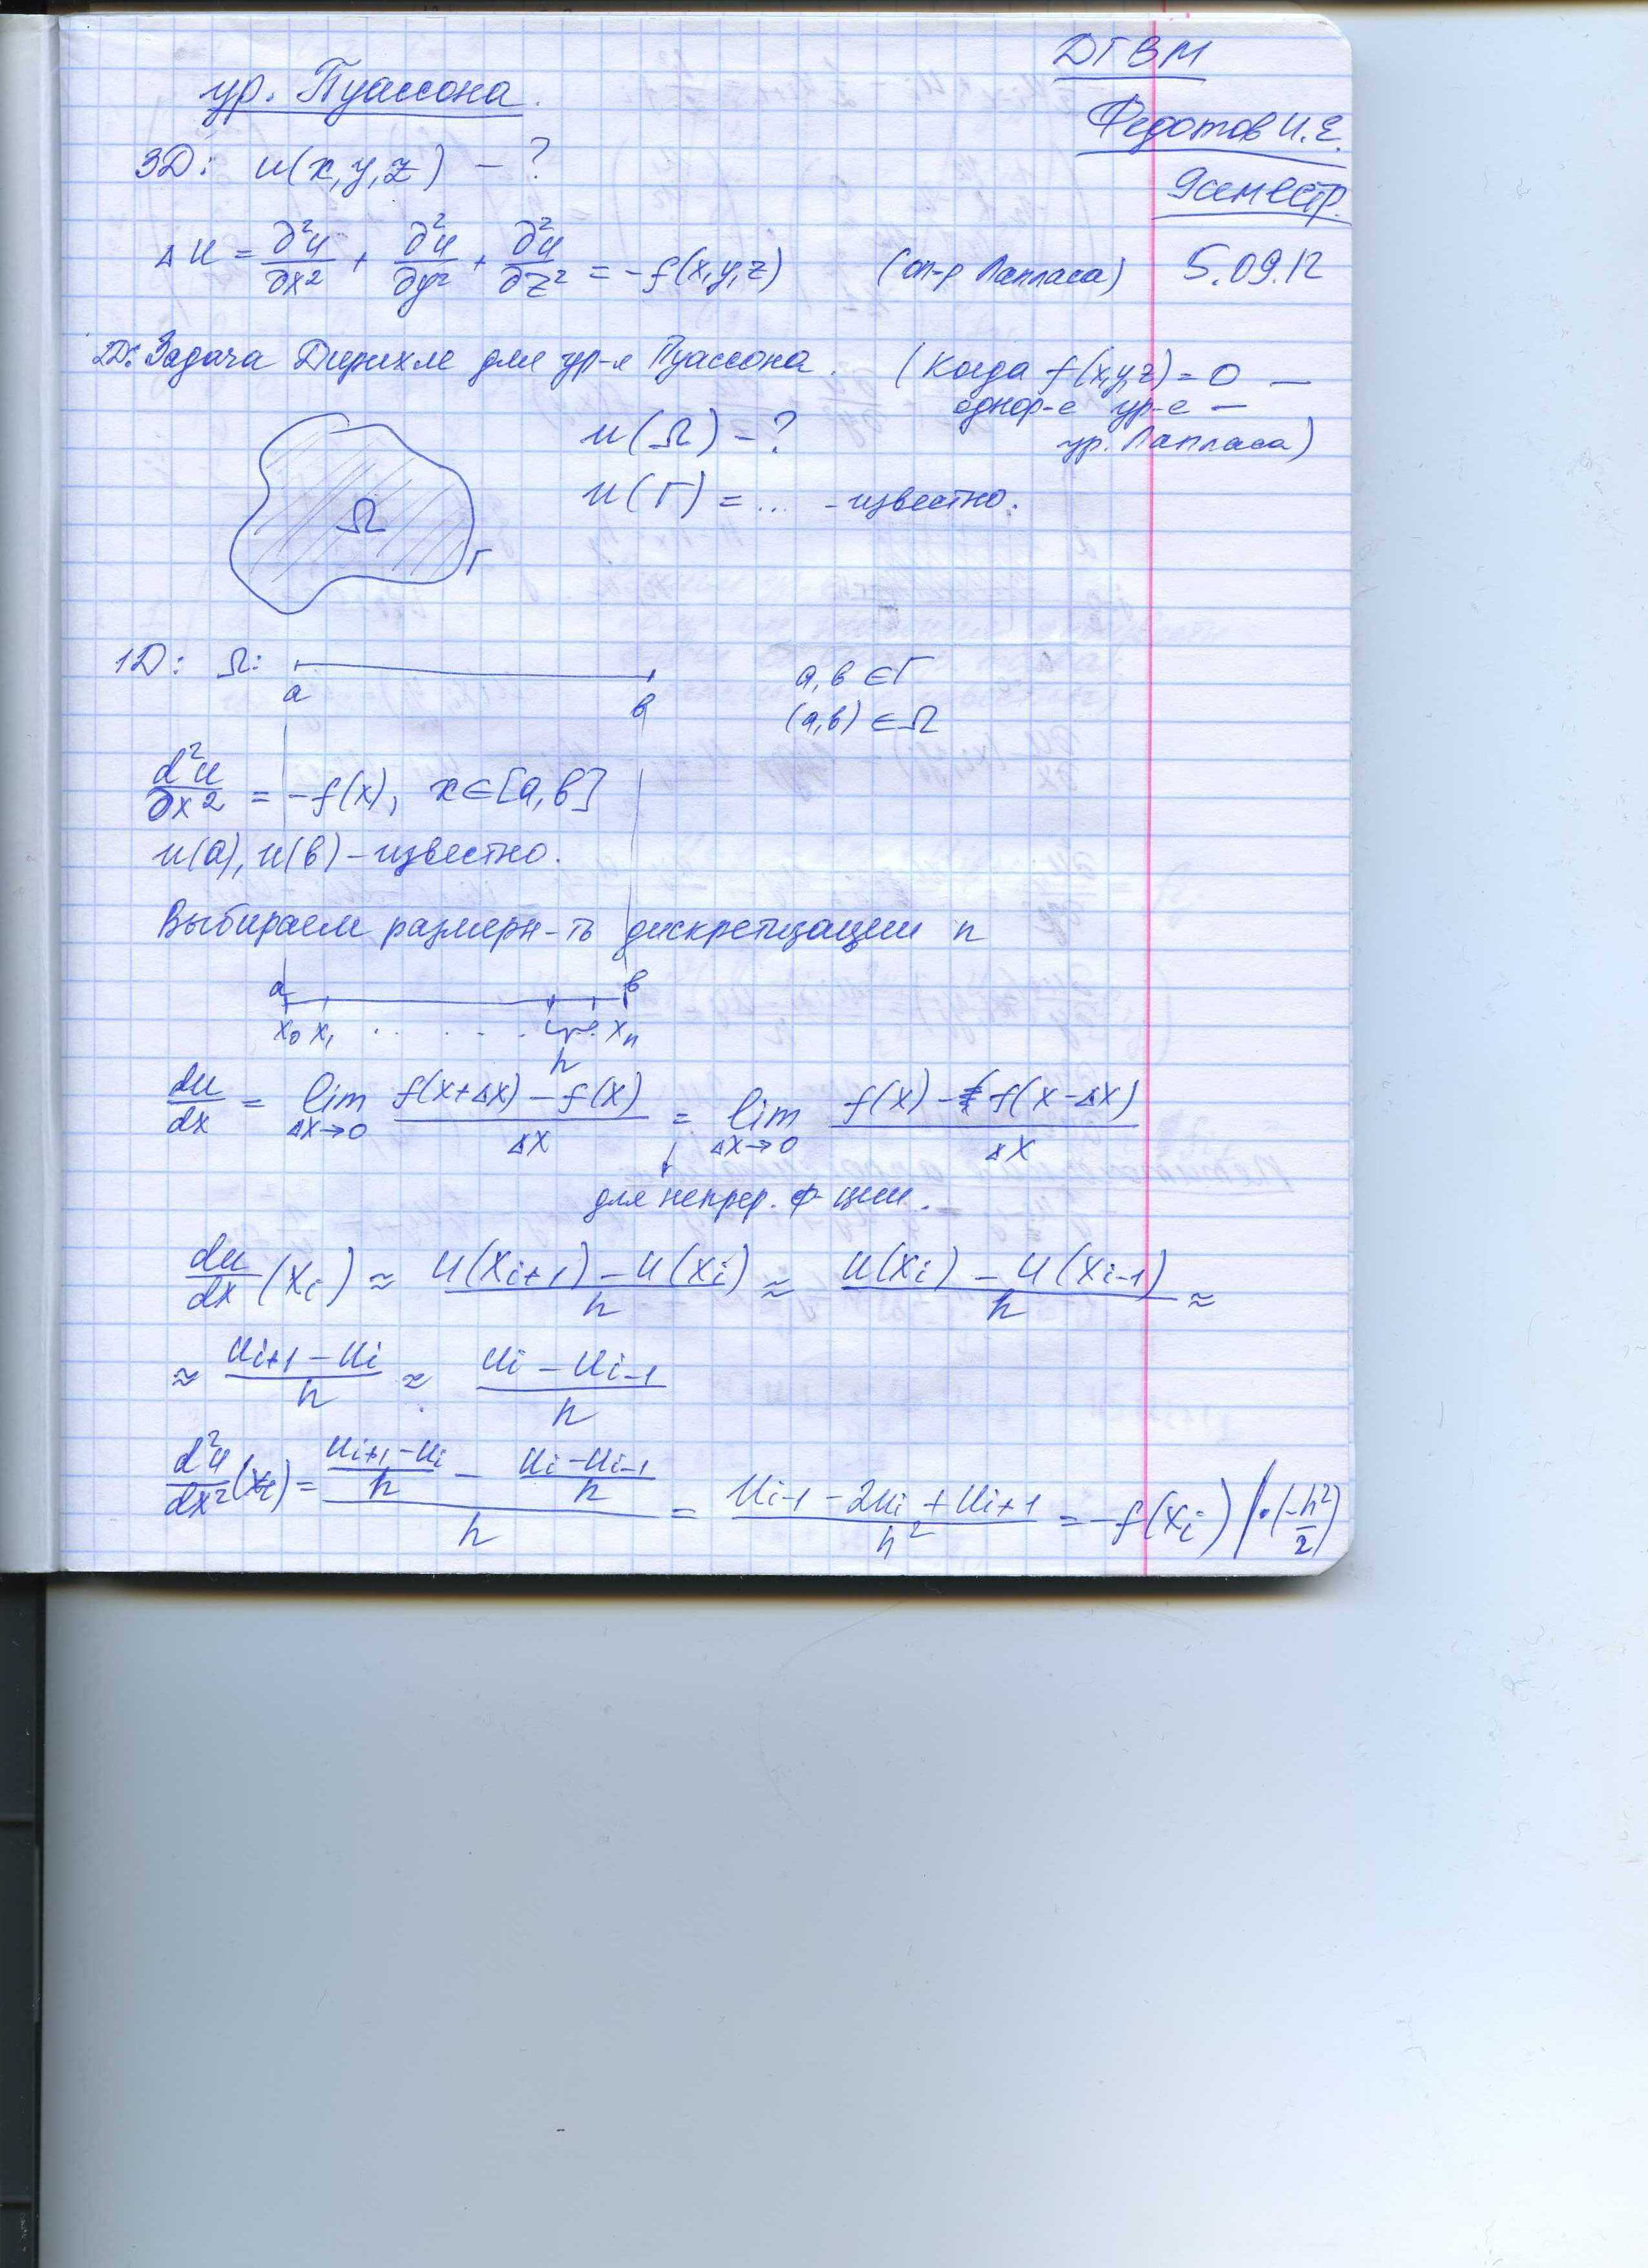 ДГВМ
ур. Пуассона.
Федотов И.Е.
3D: u(x,y,z) - ?
9семестр.
Δu = ∂²u/∂x² + ∂²u/∂y² + ∂²u/∂z² = -f(x,y,z) (оп-р Лапласа) 5.09.12
2D: Задача Дирихле для ур-я Пуассона. (Когда f(x,y,z) = 0 —
однор-е ур-е —
u(Ω) - ?
ур. Лапласа)
u(Γ) = ... - известно.
Ω
Γ
1D: Ω:
a b
a, b ∈ Γ
(a,b) ∈ Ω
d²u/∂x² = -f(x), x ∈ [a,b]
u(a), u(b) - известно.
Выбираем размерн-ть дискретизации n
a b
x₀ x₁ . . . . . . xₙ
h
du/dx = lim Δx→0 (f(x+Δx) - f(x))/Δx = lim Δx→0 (f(x) - f(x-Δx))/Δx
↓
для непрер. ф-ции.
du/dx (xᵢ) ≈ (u(xᵢ₊₁) - u(xᵢ))/h ≈ (u(xᵢ) - u(xᵢ₋₁))/h ≈
≈ (uᵢ₊₁ - uᵢ)/h ≈ (uᵢ - uᵢ₋₁)/h
d²u/dx² (xᵢ) = ((uᵢ₊₁ - uᵢ)/h - (uᵢ - uᵢ₋₁)/h)/h = (uᵢ₋₁ - 2uᵢ + uᵢ₊₁)/h² = -f(xᵢ) | · (-h²/2)